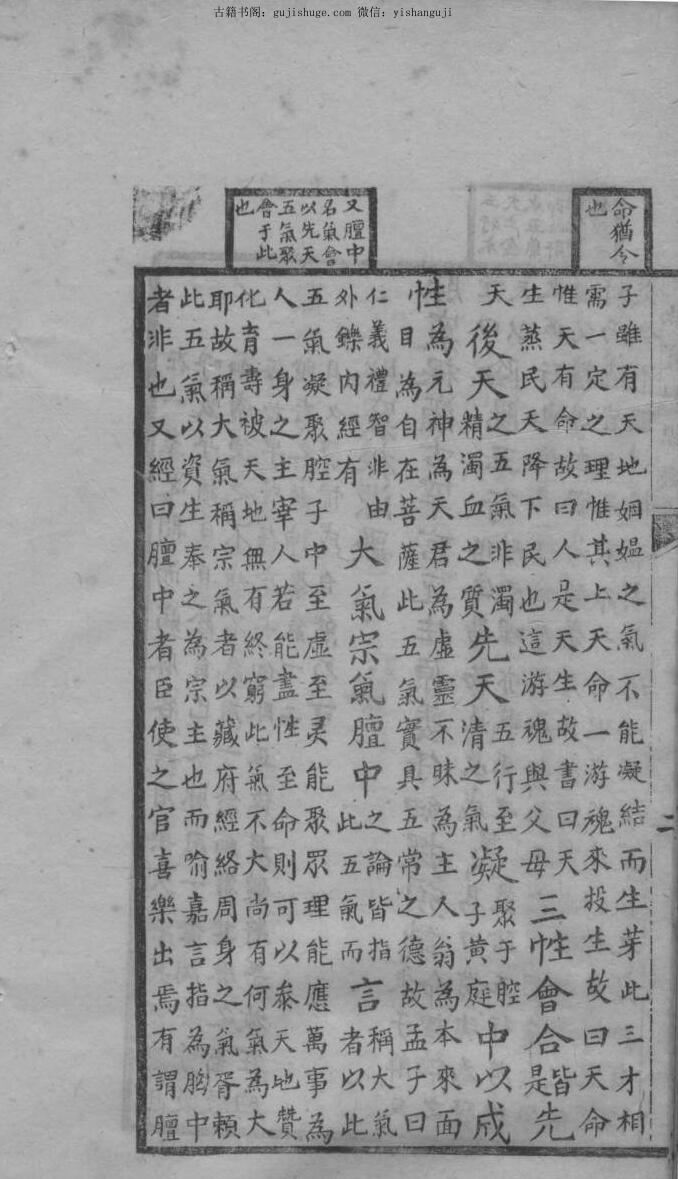 古籍书阁：gujishuge.com 微信：yishanguji
命猶令
也
又膻中
名氣會
以先天
五氣聚
會于此
也
子雖有天地姻媪之氣不能凝結而生芽此三才相
需一定之理惟其上天命一游魂來投生故曰天命
惟天有命故曰人是天生故書曰天
生蒸民天降下民也這游魂與父母
三性會合皆是先
天後天之五氣非濁精濁血之質先天五行至清之氣凝聚于腔子黄庭中以成
性為元神為天君為虛靈不昧為主人翁為本來面
目為自在菩薩此五氣實具五常之德故孟子曰
仁義禮智非由
外鑠内經有
大氣宗氣膻中之論皆指此五氣而言稱大氣者以此
五氣凝聚腔子中至虛至灵能聚眾理能應萬事為
人一身之主宰人若能盡性至命則可以叅天地贊
化育壽被天地無有終窮此氣不大尚有何氣為大
耶故稱大氣稱宗氣者以藏府經絡周身之氣胥賴
此五氣以資生奉之為宗主也而喻嘉言指為胸中
者非也又經曰膻中者臣使之官喜樂出焉有謂膻
二